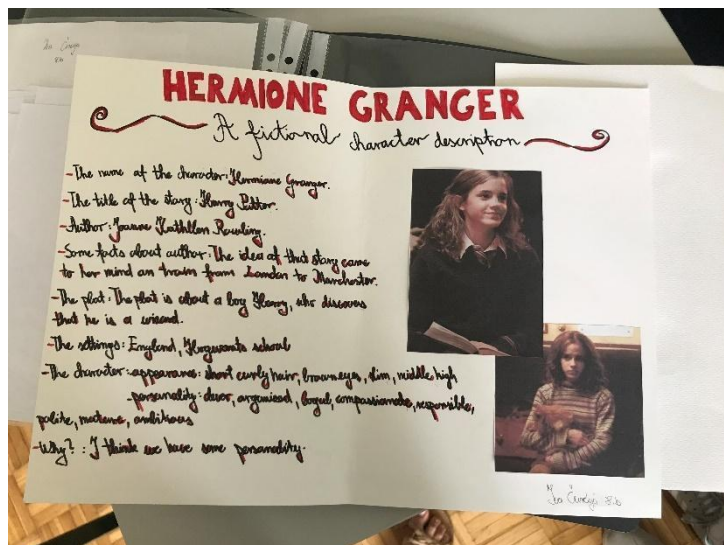 HERMIONE GRANGER
A fictional character description
-The name of the character: Hermiane Granger.
-The title of the story: Harry Potter.
-Author: Joanne Kathllen Rowling.
-Some facts about author: The idea of that story came
to her mind on train from London to Manchester.
-The plot: The plot is about a boy Harry, who discovers
that he is a wizard.
-The settings: England, Hogwarts school
-The character: appearance: short curly hair, brown eyes, slim, middle high
personality: clever, organised, loyal, compassionate, responsible,
polite, mature, ambitious
-Why?: I think we have same personality.
8.b